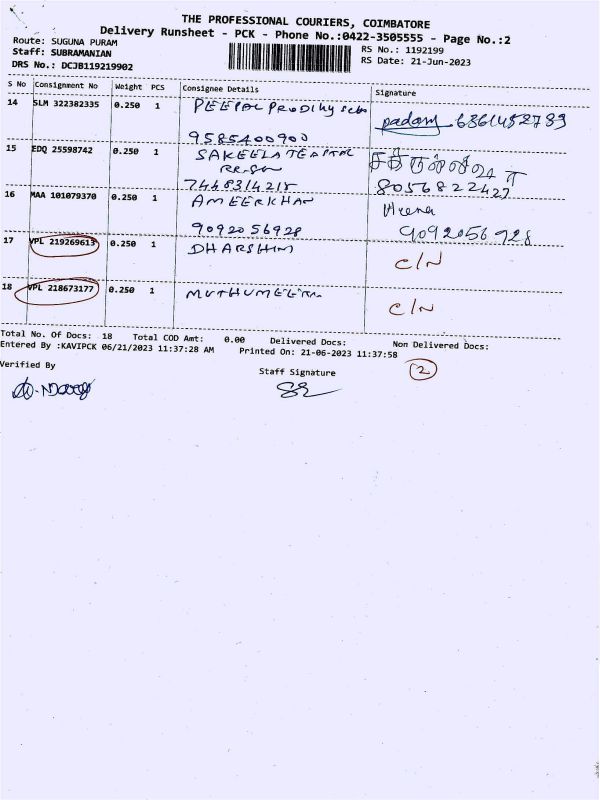 THE PROFESSIONAL COURIERS, COIMBATORE
Delivery Runsheet - PCK - Phone No.:0422-3505555 - Page No.:2
Route: SUGUNA PURAM
RS No.: 1192199
Staff: SUBRAMANIAN
RS Date: 21-Jun-2023
DRS No.: DCJB119219902
S No Consignment No Weight PCS Consignee Details Signature
14 SLM 322382335 0.250 1 PEEPAL PRODIGY padam
9585400900
15 EDQ 25598742 0.250 1 SAKEELA
7448314215 8056822427
16 MAA 101079370 0.250 1 AMEERKHAN Heena
9092056928 9092056928
17 VPL 219269613 0.250 1 DHARSHINI C/N
18 VPL 218673177 0.250 1 MUTHUMEENA C/N
Total No. Of Docs: 18 Total COD Amt: 0.00 Delivered Docs: Non Delivered Docs:
Entered By :KAVIPCK 06/21/2023 11:37:28 AM Printed On: 21-06-2023 11:37:58
2
Verified By Staff Signature